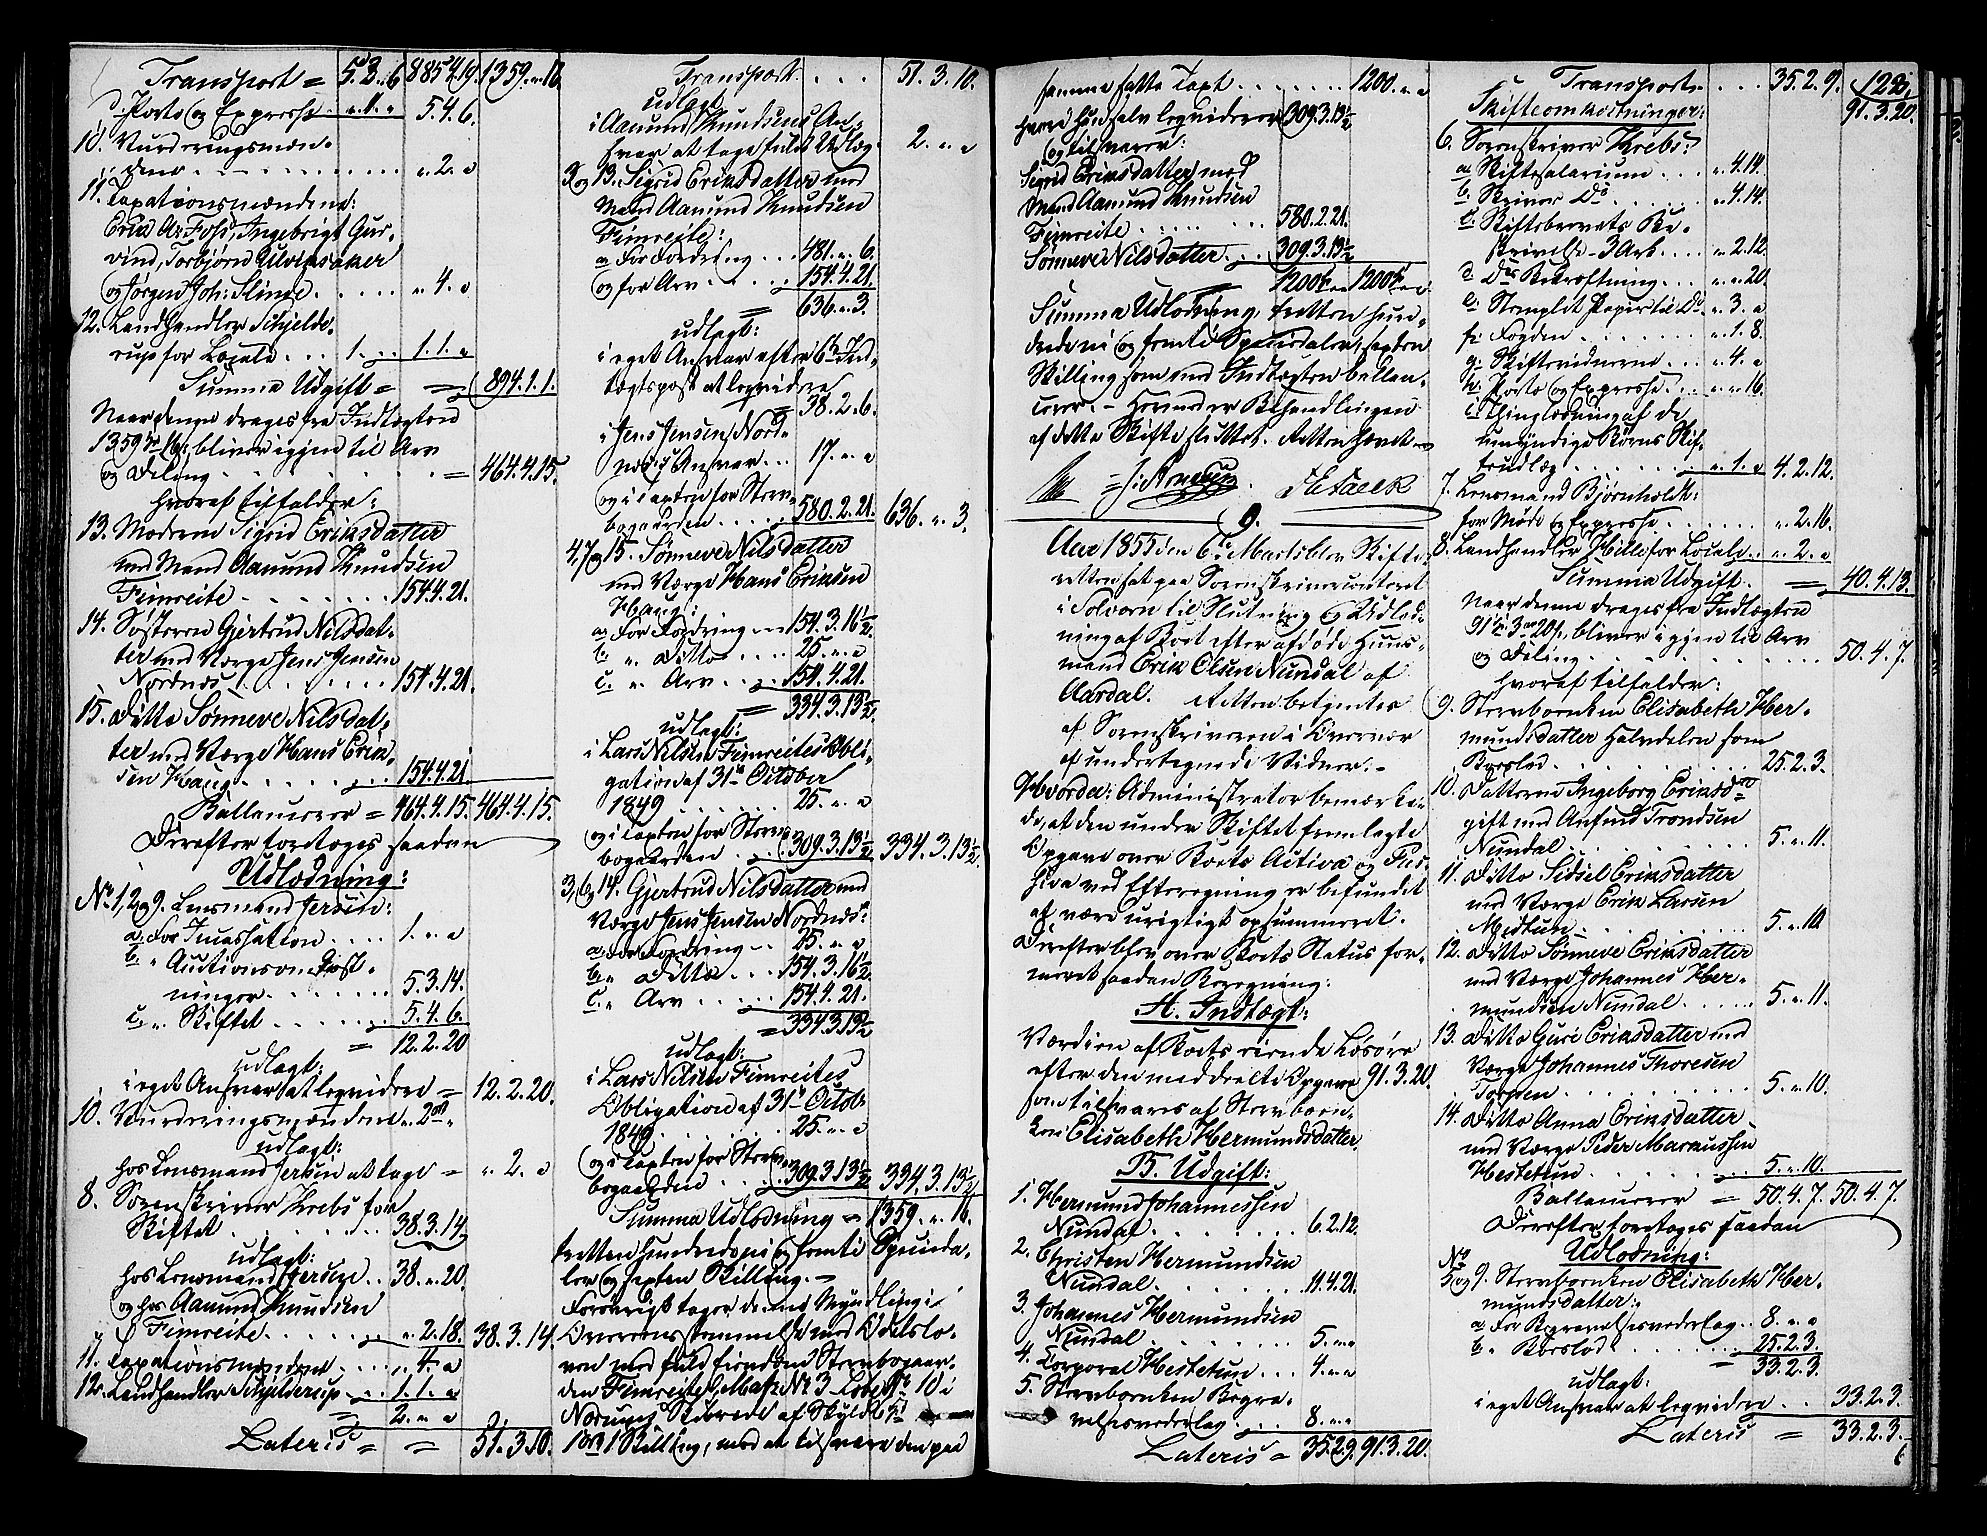 Transport = 5.3.6. 885.4.19. 1359. " 16
d. Porto og Expresse " 1. " 5.4.6.
10. Vurderingsmæn-
dene . . . . " 2. "
11. Taxationsmændene:
Erik A: Foss, Ingebrigt Gur-
vind, Torbjørn Ulviksaker
og Jørgen Joh: Slinde . . . " 4. "
12. Landhandler Schjelde-
rup for Locale . . . 1. " 1.1. "
Summa Udgift = = 894.1.1.
Naar denne drages fra Indtægten
1359 Spd 16 s, bliver igjen til Arv
og Deling . . . = 464.4.15.
hvoraf tilfalder:
13. Moderen Sigrid Eriksdatter
med Mand Aamund Knudsen
Fimreite . . . . 154.4.21.
14. Søsteren Gjertrud Nilsdat-
ter med Værge Jens Jensen
Nordnes . . . . 154.4.21.
15. Ditto Sønneve Nilsdat-
ter med Værge Hans Erik-
sen Haug . . . . 154.4.21
Ballancerer = 464.4.15. 464.4.15.
Derefter foretoges saadan
Udlodning:
No 1, 2 og 9. Lensmand Jersin:
a. For Incassation . . . 1. " "
b. " Auctionsomkost-
ninger . . . . 5.3.14.
c. " Skiftet . . . . 5.4.6.
= 12.2.20
udlagt:
i eget Ansvar at leqvidere = 12.2.20.
10. Vurderingsmændene " 2 ort "
udlagt:
hos Lensmand Jersin at tage = " 2. "
8. Sorenskriver Krebs for
Skiftet . . . . 38.3.14
udlagt:
hos Lensmand Jersin . . 38. " 20.
og hos Aamund Knudsen
Fimreite . . . . " 2.18. 38.3.14.
11. Taxationsmændene . . . " 4. "
12. Landhandler Schjelderup . . 1.1. "
= 2. " "
Lateris = = 51.3.10.
Transport . . . 51.3.10.
udlagt
i Aamund Knudsens An-
svar at tage fuldt Udlæg 2. " "
2 og 13. Sigrid Eriksdatter med
Mand Aamund Knudsen
Fimreite:
a. For Fordring . . . 481. " 6.
og for Arv . . . . 154.4.21.
= 636. " 3.
udlagt:
i eget Ansvar efter 6te Ind-
tægtspost at leqvidere
= 38.2.6.
i Jens Jensen Nord-
næs's Ansvar . . . 17. " "
og i Taxten for Stervbo-
gaarden . . . . 580.2.21. 636. " 3.
4, 7 og 15. Sønneve Nilsdatter
med Værge Hans Eriksen
Haug:
a. For Fordring . . . 154.3.16½.
b. " Ditto . . . . 25. " "
c. " Arv . . . . 154.4.21.
= 334.3.13½.
udlagt:
i Lars Nilsen Fimreites Obli-
gation af 31te October
1849 . . . . 25. " "
og i Taxten for Stervbo-
gaarden . . . 309.3.13½ 334.3.13½.
3, 6, 14. Gjertrud Nilsdatter med
Værge Jens Jensen Nordnes:
a. For Fordring . . . 25. " "
b. " Ditto . . . 154.3.16½.
c. " Arv . . . . 154.4.21.
= 334.3.13½
udlagt:
i Lars Nilsen Fimreites
Obligation af 31te Octob.
1849 . . . . 25. " "
og i Taxten for Stervbo-
gaarden . . . . 309.3.13½ 334.3.13½
Summa Udlodning = 1359. " 16.
Tretten hundrede ni og femti Specieda-
ler og sexten Skilling. –
Forøvrigt tager denne Myndling i
Overensstemmelse med Odelslo-
ven med fuld Eiendom Stervbogaar-
den Fimreite, Matr. No 3 Løbe No 10 i
Norums Skibrede af Skyld 1 Daler
1 Ort 1 Skilling, mod at tilsvare den paa
samme satte Taxt . . . . 1200. " "
hvori hun selv leqviderer 309.3.13½
og tilsvarer:
Sigrid Eriksdatter med
Mand Aamund Knudsen
Fimreite . . . . 580.2.21.
Sønneve Nilsdatter . . . 309.3.13½
1200 " " 1200 " "
Summa Udlodning, tretten hun-
drede ni og femti Speciedaler, sexten
Skilling, som med Indtægten ballan-
cerer. – Hermed er Behandlingen
af dette Skifte sluttet. Retten hævet –
9.
Aar 1855 den 6te Marts blev Skifte-
retten sat paa Sorenskrivercontoret
i Solvorn til Slutning og Udlod-
ning af Boet efter afdøde Huus-
mand Erik Olsen Nundal af
Aardal. Retten betjentes
af Sorenskriveren i Overvær
af undertegnede Vidner: –
Hvorda: Administrator bemærke-
de, at den under Skiftet fremlagte
Opgave over Boets Activa og Pas-
siva ved Efterregning er befundet
at være urigtigt opsummeret.
Derefter blev over Boets Status for-
meret saadan Beregning:
A. Indtægt:
Værdien af Boets eiende Løsøre
efter den meddeelte Opgave 91.3.20.
som tilsvares af Stervboen-
ken Elisabeth Hermundsdatter.
B. Udgift:
1. Hermund Johannessen
Nundal . . . . 6.2.12.
2. Christen Hermundsen
Nundal . . . . 11.4.21.
3. Johannes Hermundsen
Nundal . . . . 5. " "
4. Corporal Hestetun . . . 4. " "
5. Stervboenken Begra-
velsesvederlag . . . 8. " "
Lateris = 35.2.9. 91.3.20.
Transport . . . 35.2.9. 91.3.20.
Skifteomkostninger:
6. Sorenskriver Krebs:
a. Skiftesalarium . . . " 4.14.
b. Skriver Do . . . . " 4.14.
c. Skiftebrevets Be-
skrivelse 3 Ark . . . " 2.12.
d. Dets Bekræftning . . . " " 20.
e. Stemplet Papir til Do " 3. "
f. Fogden . . . . " 1.8.
g. Skiftevidnerne . . . " 4. "
h. Porto og Expresse . . " " 16.
i. Thinglæsning af de
umyndige Børns Skif-
teudlæg . . . . " 1. " 4.2.12.
7. Lensmand Bjørnholdt
for Møde og Expresse . . . " 2.16.
8. Landhandler Hille for Locale . . " 2. "
Summa Udgift. = 40.4.13.
Naar denne drages fra Indtægten
91 Spd 3 ort 20 s, bliver igjen til Arv
og Deling . . . . 50.4.7.
hvoraf tilfalder:
9. Stervboenken Elisabeth Her-
mundsdatter Halvdelen som
Boeslod . . . . 25.2.3.
10. Datteren Ingeborg Eriksdr
gift med Anfind Trondsen
Nundal . . . . 5. " 11.
11. Ditto Sidsel Eriksdatter
med Værge Erik Larsen
Midtun . . . . 5. " 10
12. Ditto Sønneve Eriksdatter
med Værge Johannes Her-
mundsen Nundal . . . 5. " 11.
13. Ditto Guri Eriksdatter med
Værge Johannes Thoresen
Torpen . . . . 5. " 10.
14. Ditto Anna Eriksdatter
med Værge Peder Marcussen
Hestetun . . . . 5. " 10.
Ballancerer = 50.4.7. 50.4.7.
Derefter foretoges saadan
Udlodning:
No
5 og 9. Stervboenken Elisabeth Her-
mundsdatter:
a. For Begravelsesvederlag . . 8. " "
b. " Boeslod . . . . 25.2.3.
= 33.2.3.
udlagt:
i eget Ansvar at leqvidere . . 33.2.3.
Lateris = 33.2.3.